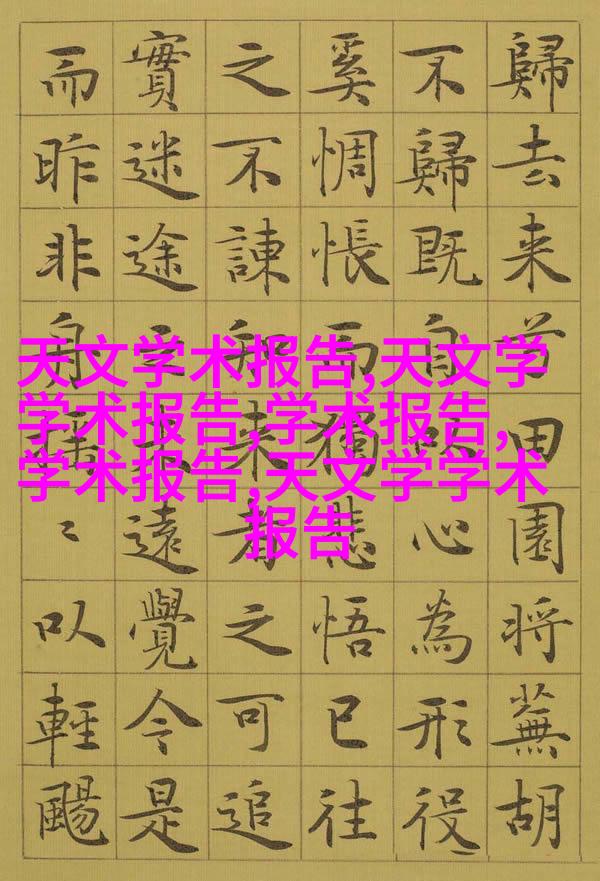 歸去来兮田園将蕪胡
不歸既自以心為形役
奚惆悵而獨悲悟已往
之不諫知来者之可追
實迷途未遠覺今是
而昨非舟摇〻以輕颺
天文学术报告,天文学
学术报告,学术报告,
学术报告,天文学学术
报告